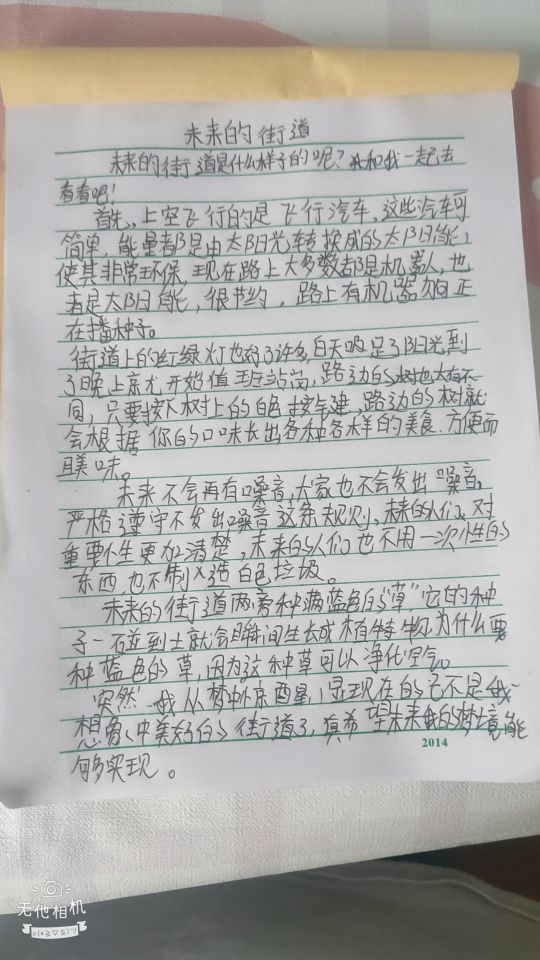 未来的街道
未来的街道是什么样子的呢？和我一起去
看看吧！
首先，上空飞行的是飞行汽车，这些汽车可
简单，能量都是由太阳光转换成的太阳能，
使其非常环保，现在路上大多数都是机器人，也
都是太阳能，很节约，路上有机器狗正
在播种子。
街道上的红绿灯也给了许多，白天吸足了阳光到
了晚上就开始值班站岗，路边的树也大有不
同，只要按下树上的白色按键，路边的树就
会根据你的口味长出各种各样的美食，方便而
且美味。
未来不会再有噪音，大家也不会发出噪音，
严格遵守不发出噪音这条规则，未来的人们，对
重要性更加清楚，未来的人们也不用一次性的
东西，也不制造白色垃圾。
未来的街道两旁种满蓝色的“草”，它的种
子一碰到土就会瞬间生长成植物，为什么要
种蓝色的草，因为这种草可以净化空气。
突然，我从梦中惊醒，发现现在的它不是我
想象中美好的街道了，真希望未来我的梦境能
够实现。
2014
无他相机